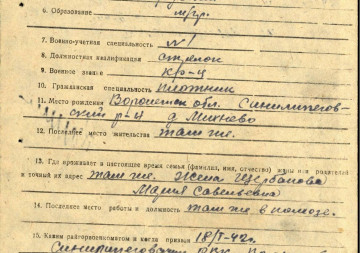 6. Образование м/гр.
7. Военно-учетная специальность №1
8. Должностная квалификация стрелок
9. Военное звание к/р-ц
10. Гражданская специальность плотник
11. Место рождения Воронежск обл. Синелипегов
ский р-н д. Михнево
12. Последнее место жительства там же.
13. Где проживает в настоящее время семья (фамилия, имя, отчество) жены или родителей
и точный их адрес там же. Жена Щербакова
Мария Савельевна
14. Последнее место работы и должность там же в колхозе.
15. Каким райгорвоенкоматом и когда призван 18/I-42г.
Синелипеговский РВК